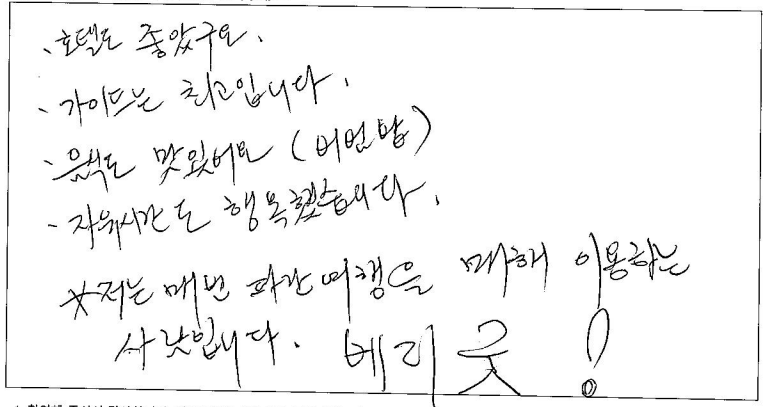 · 호텔도 좋았구요.
· 가이드는 최고입니다.
· 음식도 맛있어요 (
· 자유시간도 행복했습니다.
*저는 매년 파란여행을 이용하는
사람입니다. 베리 굿!